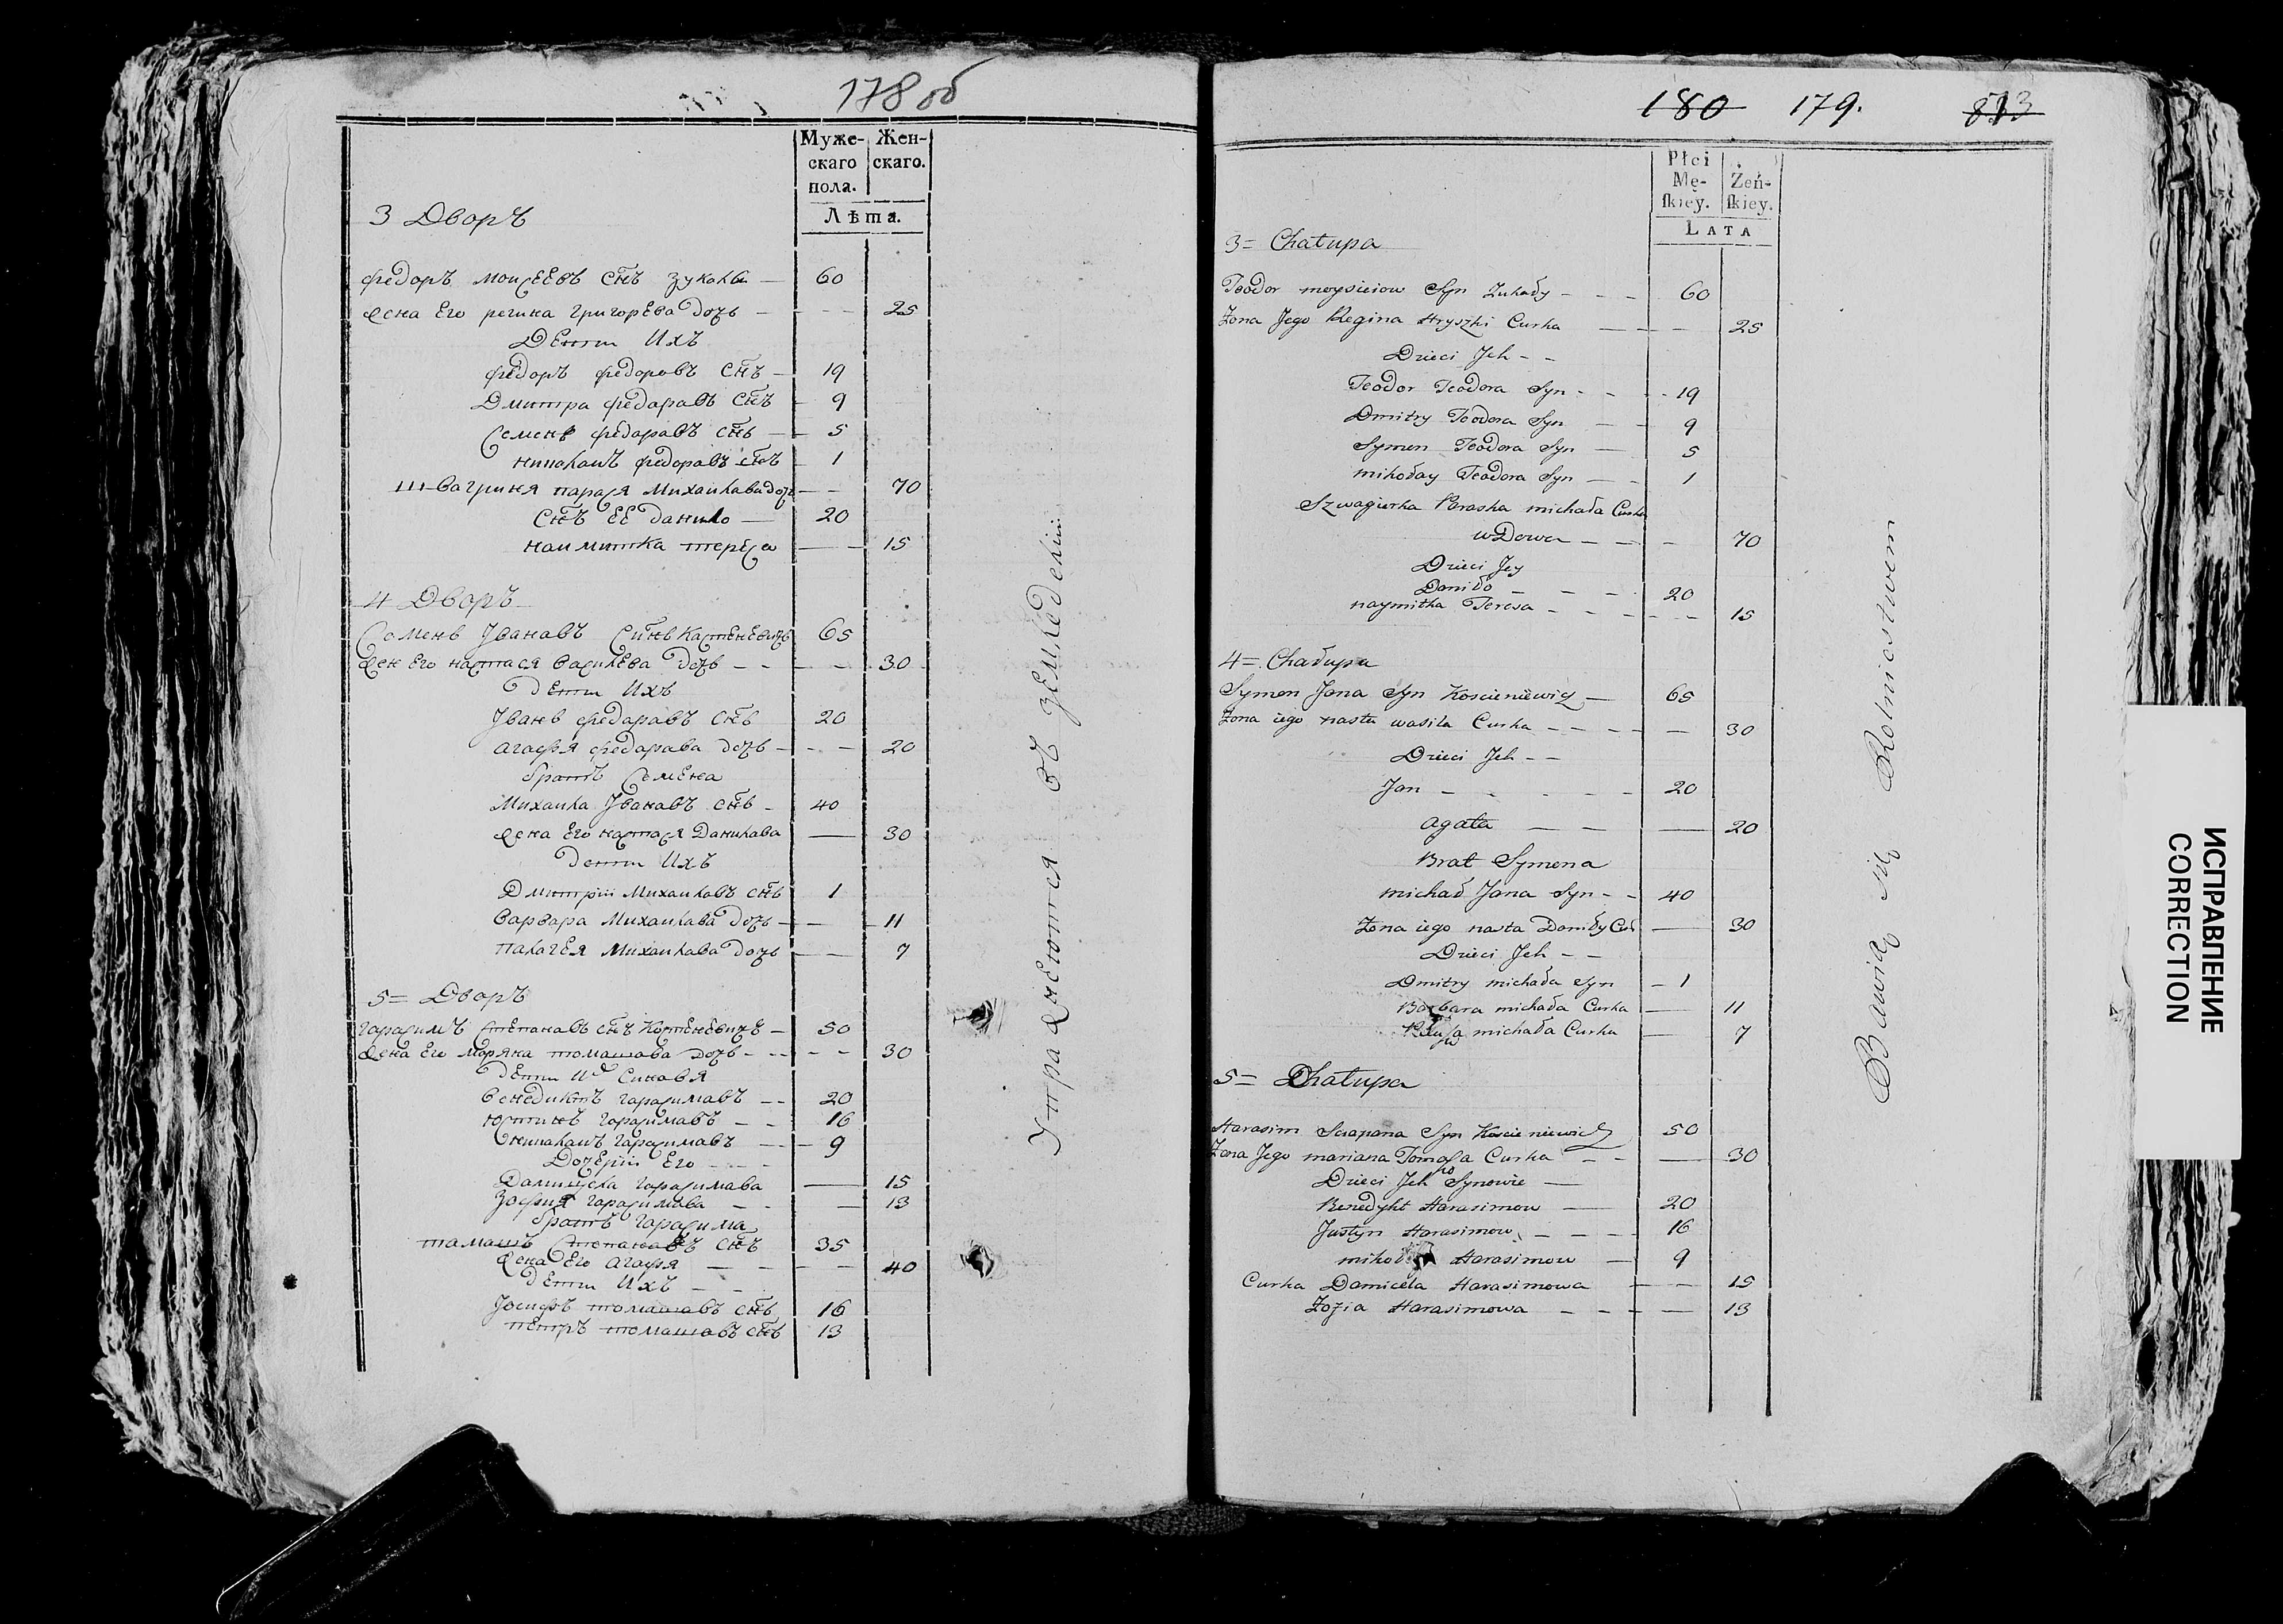 178 об
Муже- Жен-
скаго скаго.
пола.
Лѣта.
3 Дворъ
Федоръ Моисеевъ снъ Зукала — 60
Жена Его регина Григорева дочь — 25
Дети Ихъ
Федоръ Федоровъ снъ — 19
Дмитра Федаравъ снъ 9
Семенъ Федаравъ снъ — 5
Николай Федоравъ снъ 1
Швагриня парася Михайлава дочь — 70
снъ ЕЕ данило — 20
наймитка тереса — 15
4 Дворъ
Семенъ Иванавъ синъ Кастеневичъ 65
Жена Его настася Василева дочь — 30
дети Ихъ
Иванъ Федаравъ снъ 20
агафия Федарава дочь — 20
братъ Семена
Михаила Иванавъ снъ — 40
Жена Его настася Данилава — 30
дети Ихъ
Дмитрій Михайлавъ снъ 1
варвара Михайлава дочь — 11
палагея Михайлава дочь — 7
5= Дворъ
гарасимъ степанавъ снъ Костеневичъ — 50
Жена Его маряна томашава дочь — 30
дети Ихъ Синавя
венедиктъ гарасимавъ — 20
юстинъ гарасимавъ — 16
николай гарасимавъ — 9
Дочерии Его
Даницела гарасимава — 15
Зофия гарасимава — 13
братъ гарасима
тамашъ степанавъ снъ 35
Жена Его агафия — 40
дети Ихъ
Иосифъ томашавъ снъ 16
петръ томашавъ снъ 13
Упражнеются въ земледелии
180 179. 873
Płci
Mę- Żeń-
ſkiey. ſkiey.
LATA
3= Chałupa
Teodor moysieiow Syn Zukały — 60
Żona Jego Regina Hryszki Curka — 25
Dzieci Jch
Teodor Teodora Syn — 19
Dmitry Teodora Syn — 9
Symon Teodora Syn — 5
mikołay Teodora Syn — 1
Szwagierka Paraska michała Curka
wDowa — 70
Dzieci Jey
Daniło — 20
naymitka Teresa — 15
4= Chałupa
Symon Jana Syn Koscieniewicz — 65
Żona iego nasta wasila Curka — 30
Dzieci Jch
Jan — 20
agata — 20
Brat Symona
michał Jana Syn — 40
Żona iego nasta Daniły Cur — 30
Dzieci Jch
Dmitry michała Syn — 1
Barbara michała Curka — 11
michała Curka — 7
5= Chałupa
Harasim Sciapana Syn Koscieniewicz 50
Żona Jego mariana Tomasza Curka — 30
Dzieci Jch Synowie —
Benedykt Harasimow — 20
Justyn Harasimow — 16
mikoł Harasimow — 9
Curka Danicela Harasimowa — 15
Zofia Harasimowa — 13
Bawią się Rolnictwem
ИСПРАВЛЕНИЕ
CORRECTION